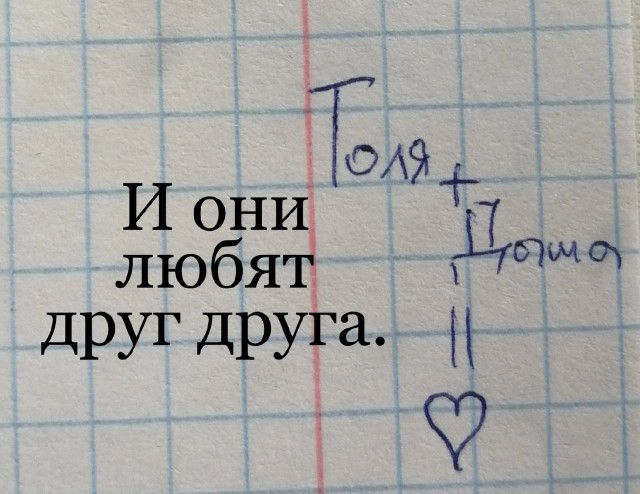 Толя
+
Даша
=
♡
И они
любят
друг друга.